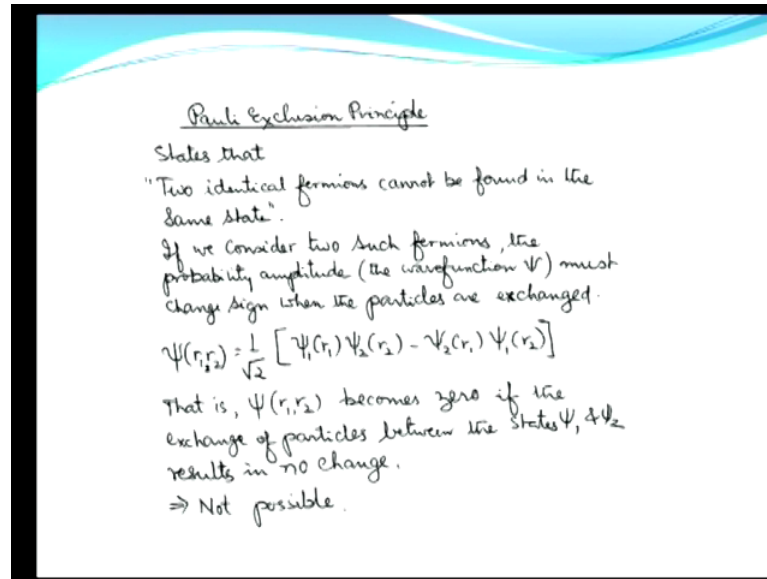 Pauli Exclusion Principle
States that
"Two identical fermions cannot be found in the
same state".
If we consider two such fermions, the
probability amplitude (the wavefunction Ψ) must
change sign when the particles are exchanged.
Ψ(r₁,r₂) = 1/√2 [Ψ₁(r₁) Ψ₂(r₂) - Ψ₂(r₁) Ψ₁(r₂)]
That is, Ψ(r₁,r₂) becomes zero if the
exchange of particles between the states Ψ₁ & Ψ₂
results in no change.
⇒ Not possible.